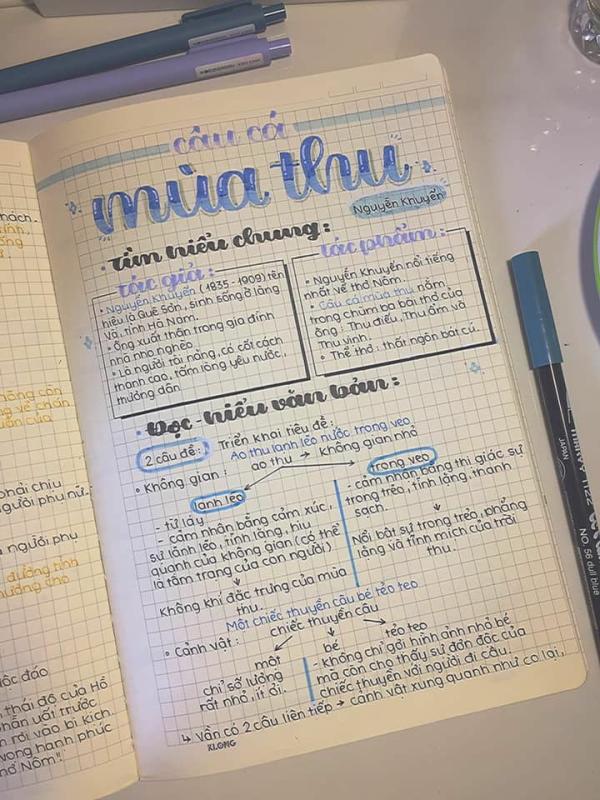 câu cá
mùa thu
Nguyễn Khuyến
• tìm hiểu chung:
tác giả:
• Nguyễn Khuyến (1835-1909) tên
hiệu là Quế Sơn, sinh sống ở làng
Và, tỉnh Hà Nam.
• Ông xuất thân trong gia đình
nhà nho nghèo.
• Là người tài năng, có cốt cách
thanh cao, tấm lòng yêu nước,
thương dân.
tác phẩm:
• Nguyễn Khuyến nổi tiếng
nhất về thơ Nôm.
• Câu cá mùa thu nằm
trong chùm ba bài thơ của
ông: Thu điếu, Thu ẩm và
Thu vịnh.
• Thể thơ: thất ngôn bát cú.
• Đọc-hiểu văn bản:
2 câu đề: Triển khai tiêu đề:
Ao thu lạnh lẽo nước trong veo
• Không gian: ao thu → không gian nhỏ
lạnh lẽo
- từ láy
- cảm nhận bằng cảm xúc,
sự lạnh lẽo, tĩnh lặng, hiu
quạnh của không gian (có thể
là tâm trạng của con người)
↓
Không khí đặc trưng của mùa
thu.
trong veo
- cảm nhận bằng thị giác sự
trong trẻo, tĩnh lặng, thanh
sạch.
↓
Nổi bật sự trong trẻo, phẳng
lặng và tĩnh mịch của trời
thu.
Một chiếc thuyền câu bé tẻo teo
• Cảnh vật: chiếc thuyền câu
một
chỉ số lượng
rất nhỏ, ít ỏi.
bé tẻo teo
- không chỉ gợi hình ảnh nhỏ bé
mà còn cho thấy sự đơn độc của
chiếc thuyền với người đi câu.
↳ Vần có 2 câu liên tiếp → cảnh vật xung quanh như co lại.
KLONG
hách.
phải chịu
gười phụ nữ.
người phụ
độc đáo
thái độ của Hồ
phẫn uất trước
rơi vào bi kịch.
vọng hạnh phúc
thơ Nôm".
JAPAN
NO. 56 dull blue